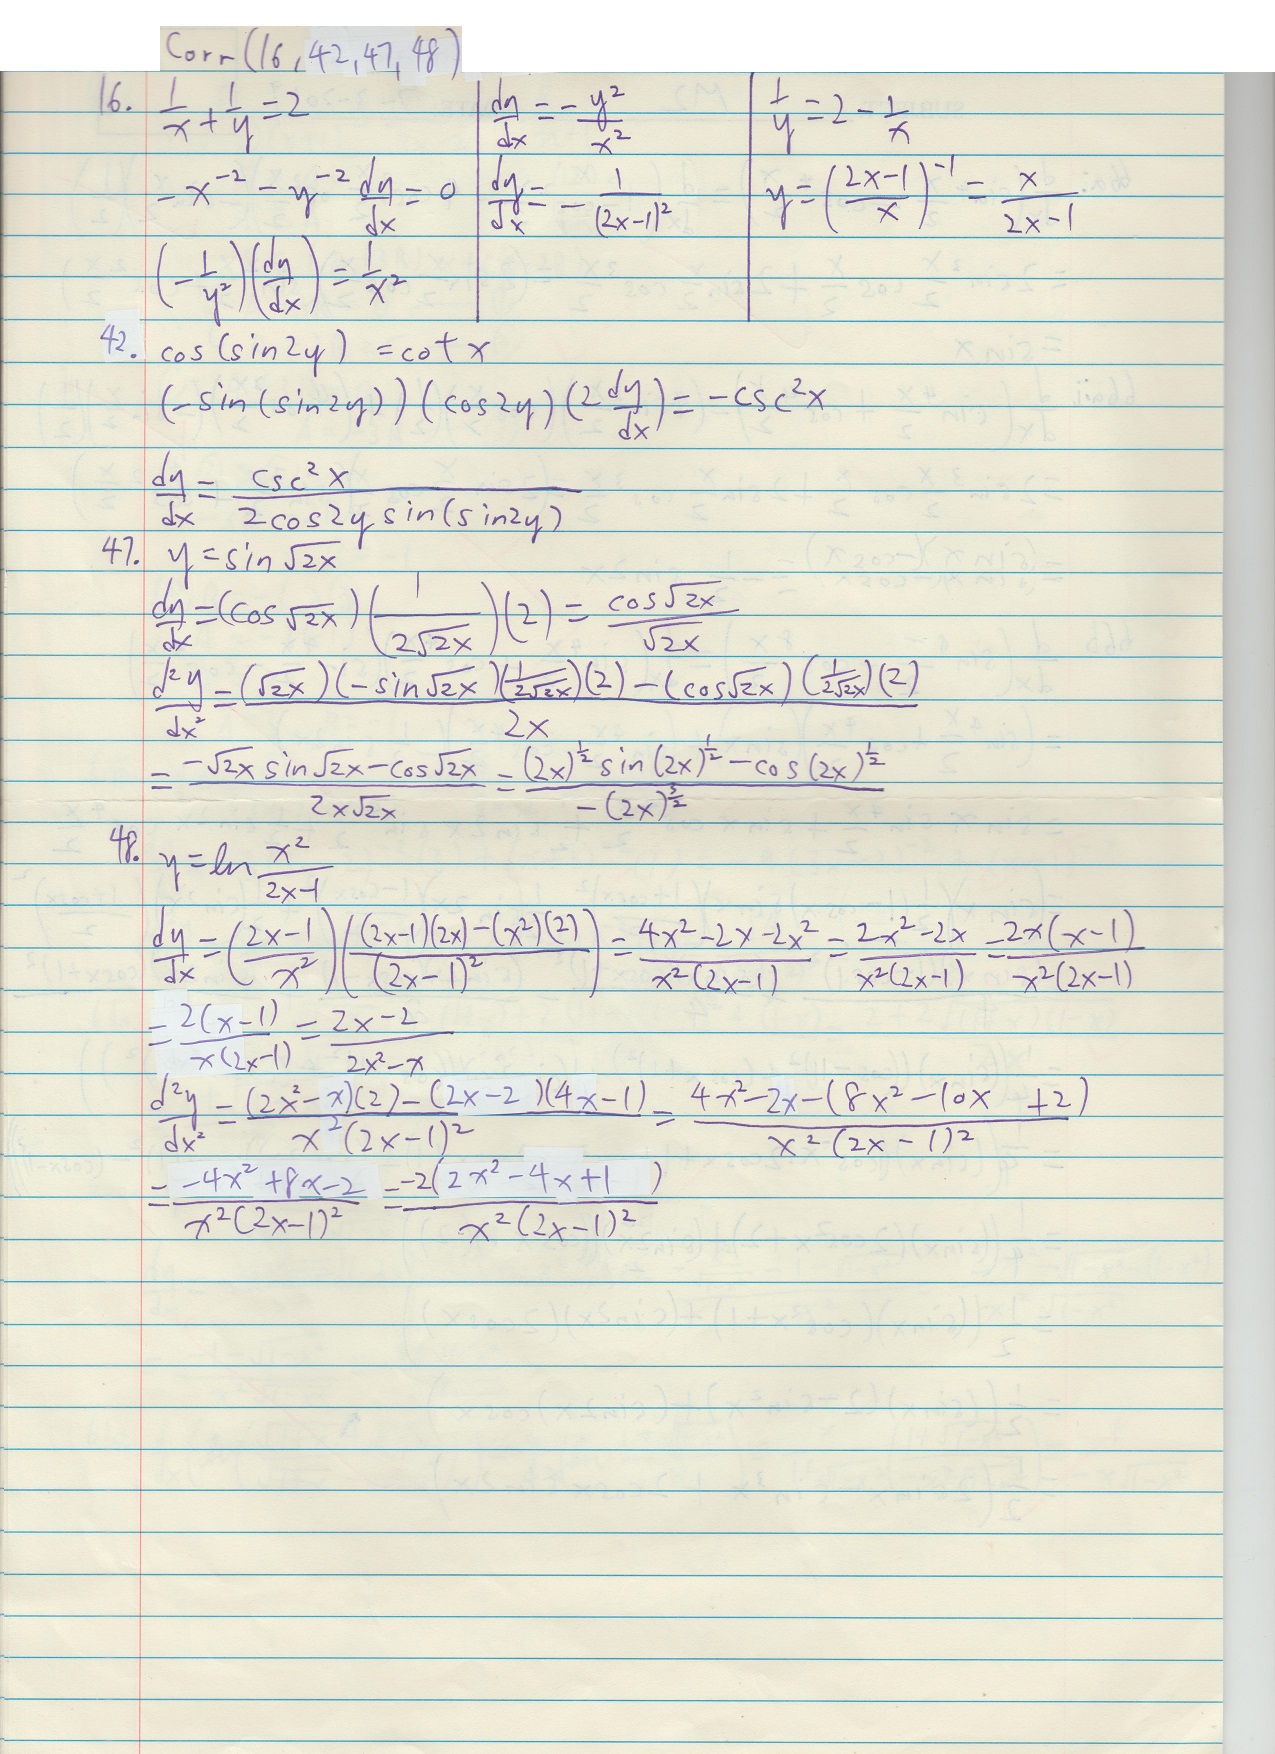 Corr(16, 42, 47, 48)
16. 1/x + 1/y = 2
-x^-2 - y^-2 dy/dx = 0
(-1/y^2)(dy/dx) = 1/x^2
dy/dx = -y^2/x^2
dy/dx = -1/(2x-1)^2
1/y = 2 - 1/x
y = ((2x-1)/x)^-1 = x/(2x-1)
42. cos(sin2y) = cot x
(-sin(sin2y))(cos2y)(2 dy/dx) = -csc^2 x
dy/dx = csc^2 x/(2cos2y sin(sin2y))
47. y = sin√2x
dy/dx = (cos√2x)(1/(2√2x))(2) = cos√2x/√2x
d^2y/dx^2 = ((√2x)(-sin√2x)(1/(2√2x))(2) - (cos√2x)(1/(2√2x))(2))/2x
= (-√2x sin√2x - cos√2x)/(2x√2x) = ((2x)^(1/2) sin(2x)^(1/2) - cos(2x)^(1/2))/(-(2x)^(3/2))
48. y = ln x^2/(2x-1)
dy/dx = ((2x-1)/x^2)(((2x-1)(2x)-(x^2)(2))/(2x-1)^2) = (4x^2-2x-2x^2)/(x^2(2x-1)) = (2x^2-2x)/(x^2(2x-1)) = 2x(x-1)/(x^2(2x-1))
= 2(x-1)/(x(2x-1)) = (2x-2)/(2x^2-x)
d^2y/dx^2 = ((2x^2-x)(2)-(2x-2)(4x-1))/(x^2(2x-1)^2) = (4x^2-2x-(8x^2-10x+2))/(x^2(2x-1)^2)
= (-4x^2+8x-2)/(x^2(2x-1)^2) = -2(2x^2-4x+1)/(x^2(2x-1)^2)